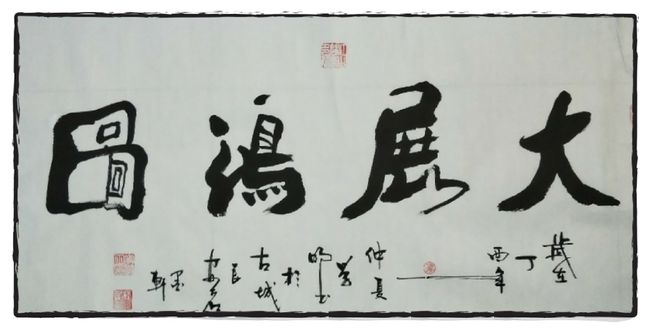 大展鴻圖
歲在
丁
酉年
仲夏
於
古城
長
安
墨軒